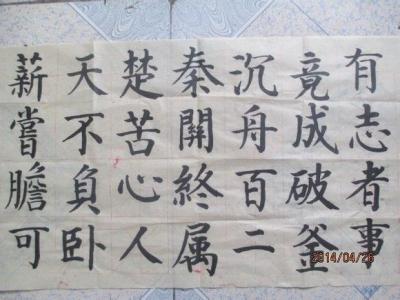 有志者事
竟成破釜
沉舟百二
秦關終属
楚苦心人
天不負卧
薪嘗膽可
2014/04/26